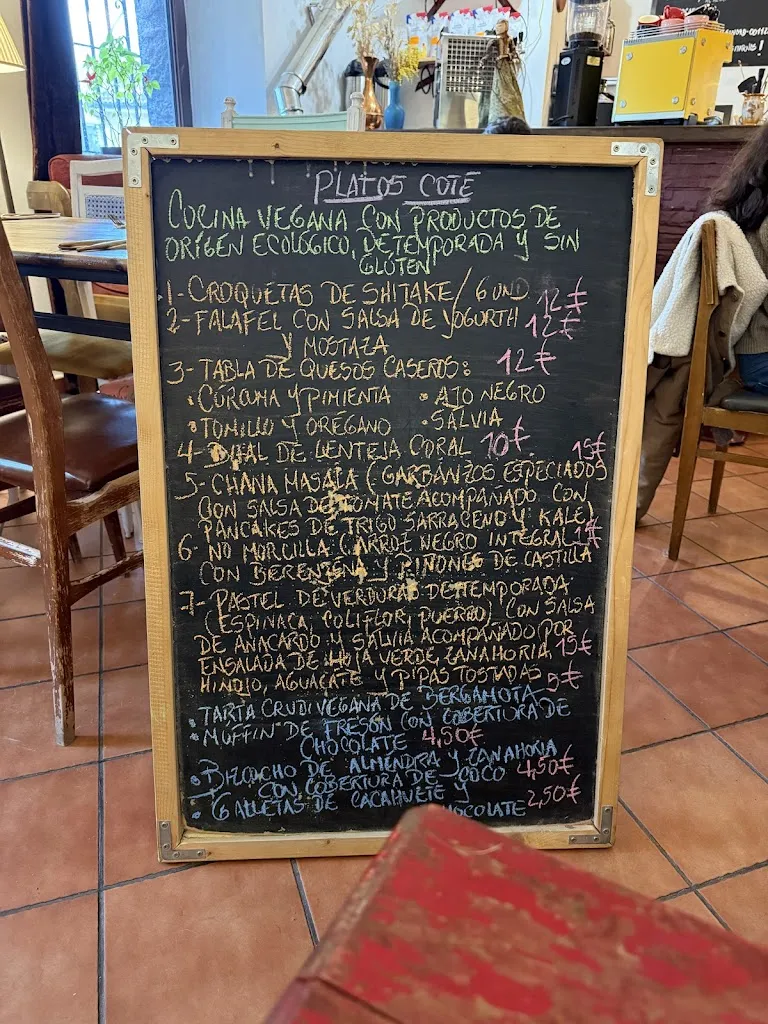 PLATOS COTÉ
COCINA VEGANA CON PRODUCTOS DE
ORIGEN ECOLÓGICO, DE TEMPORADA Y SIN
GLUTEN
1- CROQUETAS DE SHITAKE / 6 UND 12€
2- FALAFEL CON SALSA DE YOGURTH 12€
Y MOSTAZA
3- TABLA DE QUESOS CASEROS: 12€
• CÚRCUMA Y PIMIENTA • AJO NEGRO
• TOMILLO Y ORÉGANO • SALVIA
4- DHAL DE LENTEJA CORAL 10€
5- CHANA MASALA (GARBANZOS ESPECIADOS 15€
CON SALSA DE TOMATE ACOMPAÑADO CON
PANCAKES DE TRIGO SARRACENO Y KALE)
6- NO MORCILLA (ARROZ NEGRO INTEGRAL
CON BERENJENA Y PIÑONES DE CASTILLA
7- PASTEL DE VERDURAS DE TEMPORADA
(ESPINACA, COLIFLOR, PUERRO) CON SALSA
DE ANACARDO Y SALVIA ACOMPAÑADO POR
ENSALADA DE HOJA VERDE, ZANAHORIA, 15€
HINOJO, AGUACATE Y PIPAS TOSTADAS
• TARTA CRUDIVEGANA DE BERGAMOTA 5€
• MUFFIN DE FRESON CON COBERTURA DE
CHOCOLATE 4,50€
• BIZCOCHO DE ALMENDRA Y ZANAHORIA
CON COBERTURA DE COCO 4,50€
• GALLETAS DE CACAHUETE Y
CHOCOLATE 2,50€